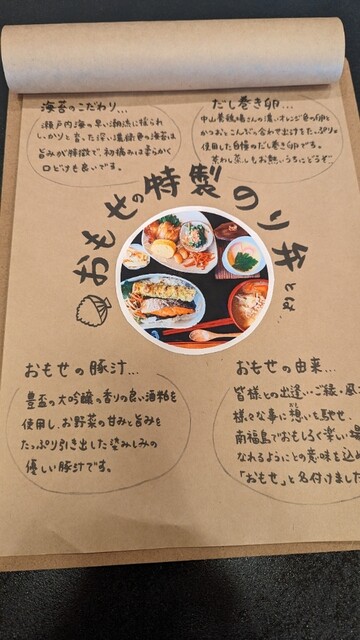 海苔のこだわり...
瀬戸内海の早い潮流に揉られ
しっかりと育った深い濃緑色の海苔は
旨みが特徴で、初摘みは柔らかく
口どけも良いです。
だし巻き卵...
中山養鶏場さんの濃いオレンジ色の卵を
かつおとこんぶの合わせ出汁をたっぷり
使用した自慢のだし巻き卵です。
お熱いうちにどうぞ
おもせの特製のり弁とは、
おもせの豚汁...
豊盃の大吟醸の香りの良い酒粕を
使用し、お野菜の甘みと旨みを
たっぷり引き出した染みしみの
優しい豚汁です。
おもせの由来...
皆様との出逢…ご縁…風
様々な事に想いを馳せ
南福島でおもしろく楽しい場
なれるようにとの意味を込め
「おもせ」と名付けました